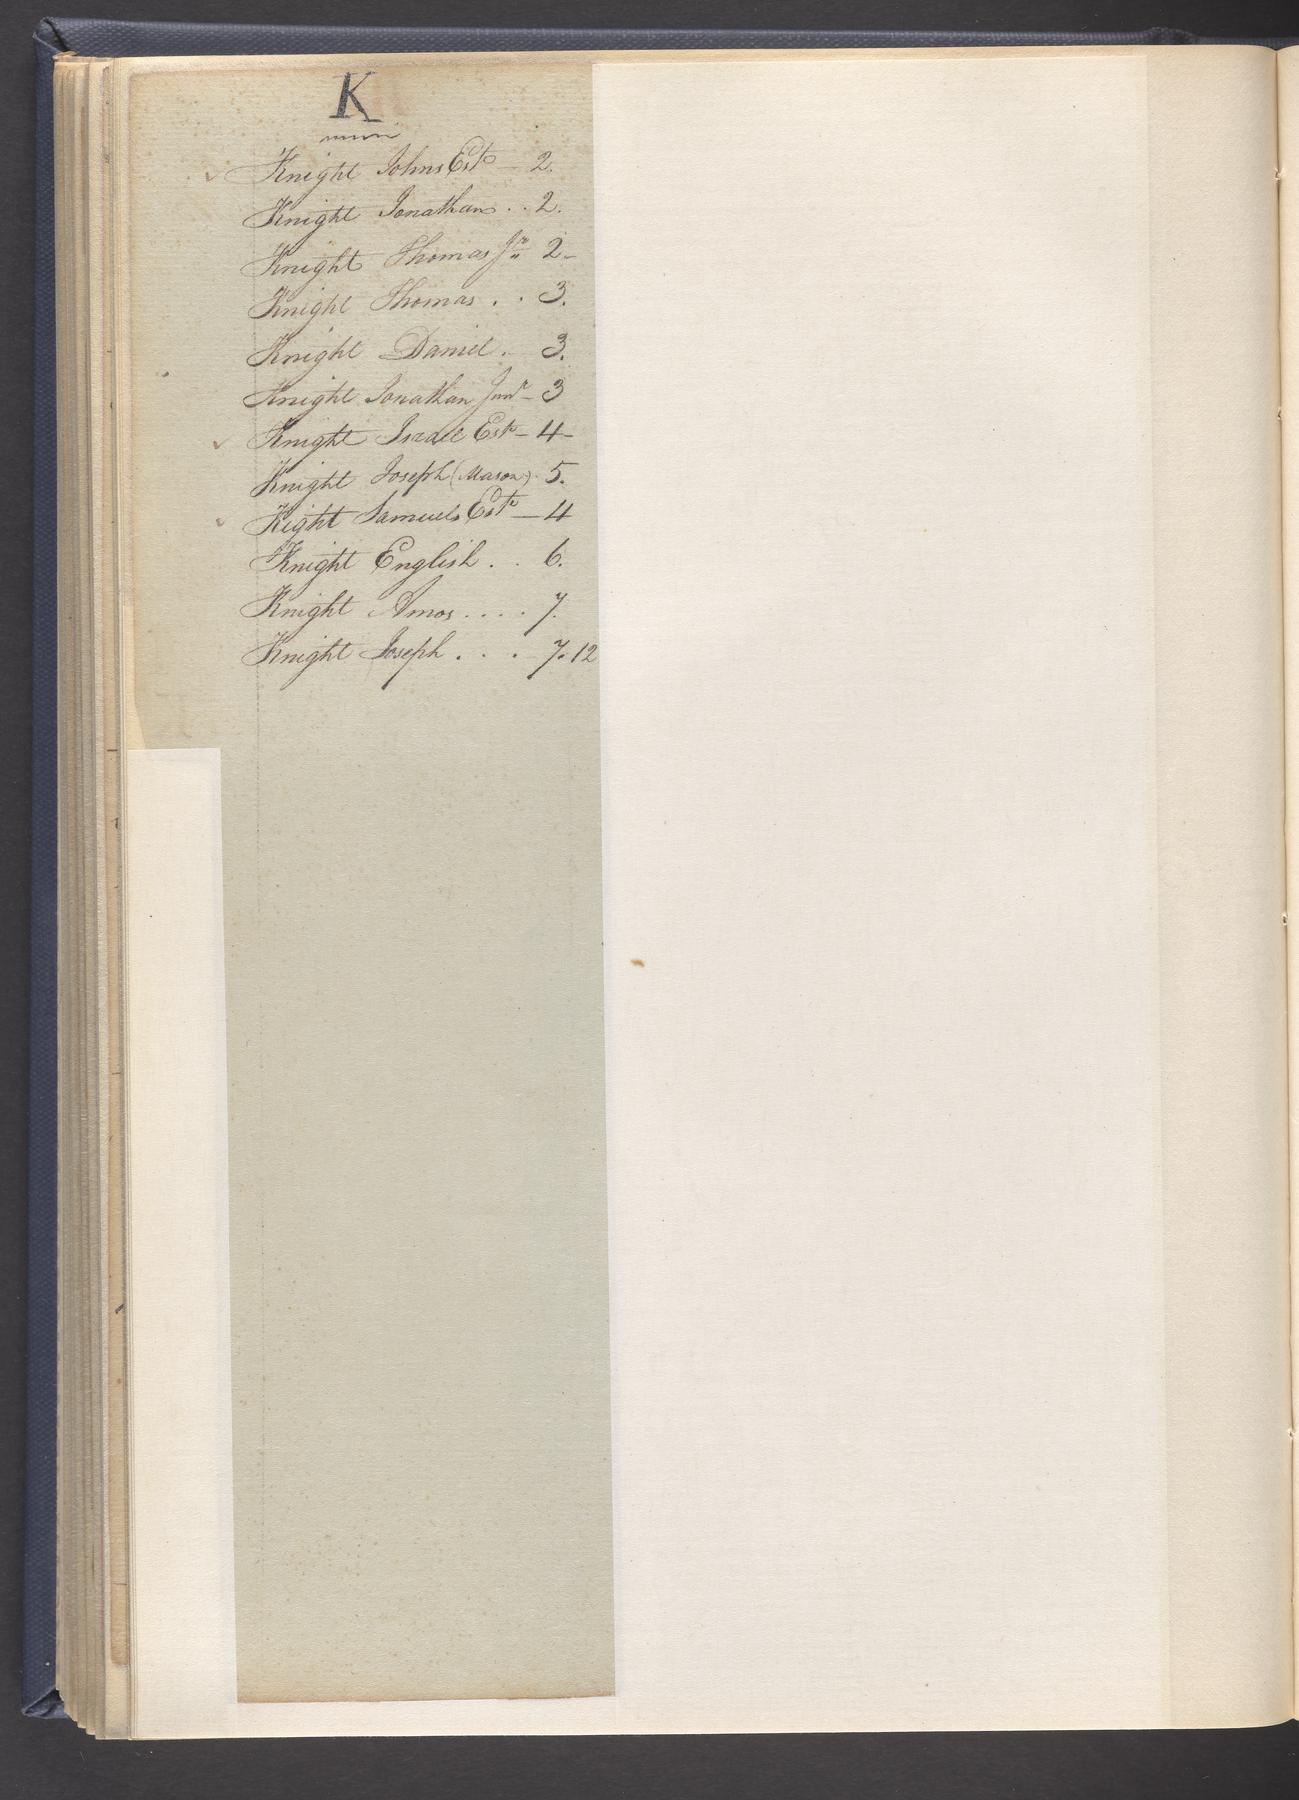 K
Knight Johns Est - 2.
Knight Jonathan . . 2.
Knight Thomas Jr 2-
Knight Thomas . . 3.
Knight Daniel . 3.
Knight Jonathan Junr - 3
Knight Israel Est - 4-
Knight Joseph (Mason) . 5.
Kight Samuels Est - 4
Knight English . . 6.
Knight Amos . . . . 7.
Knight Joseph . . . 7.12